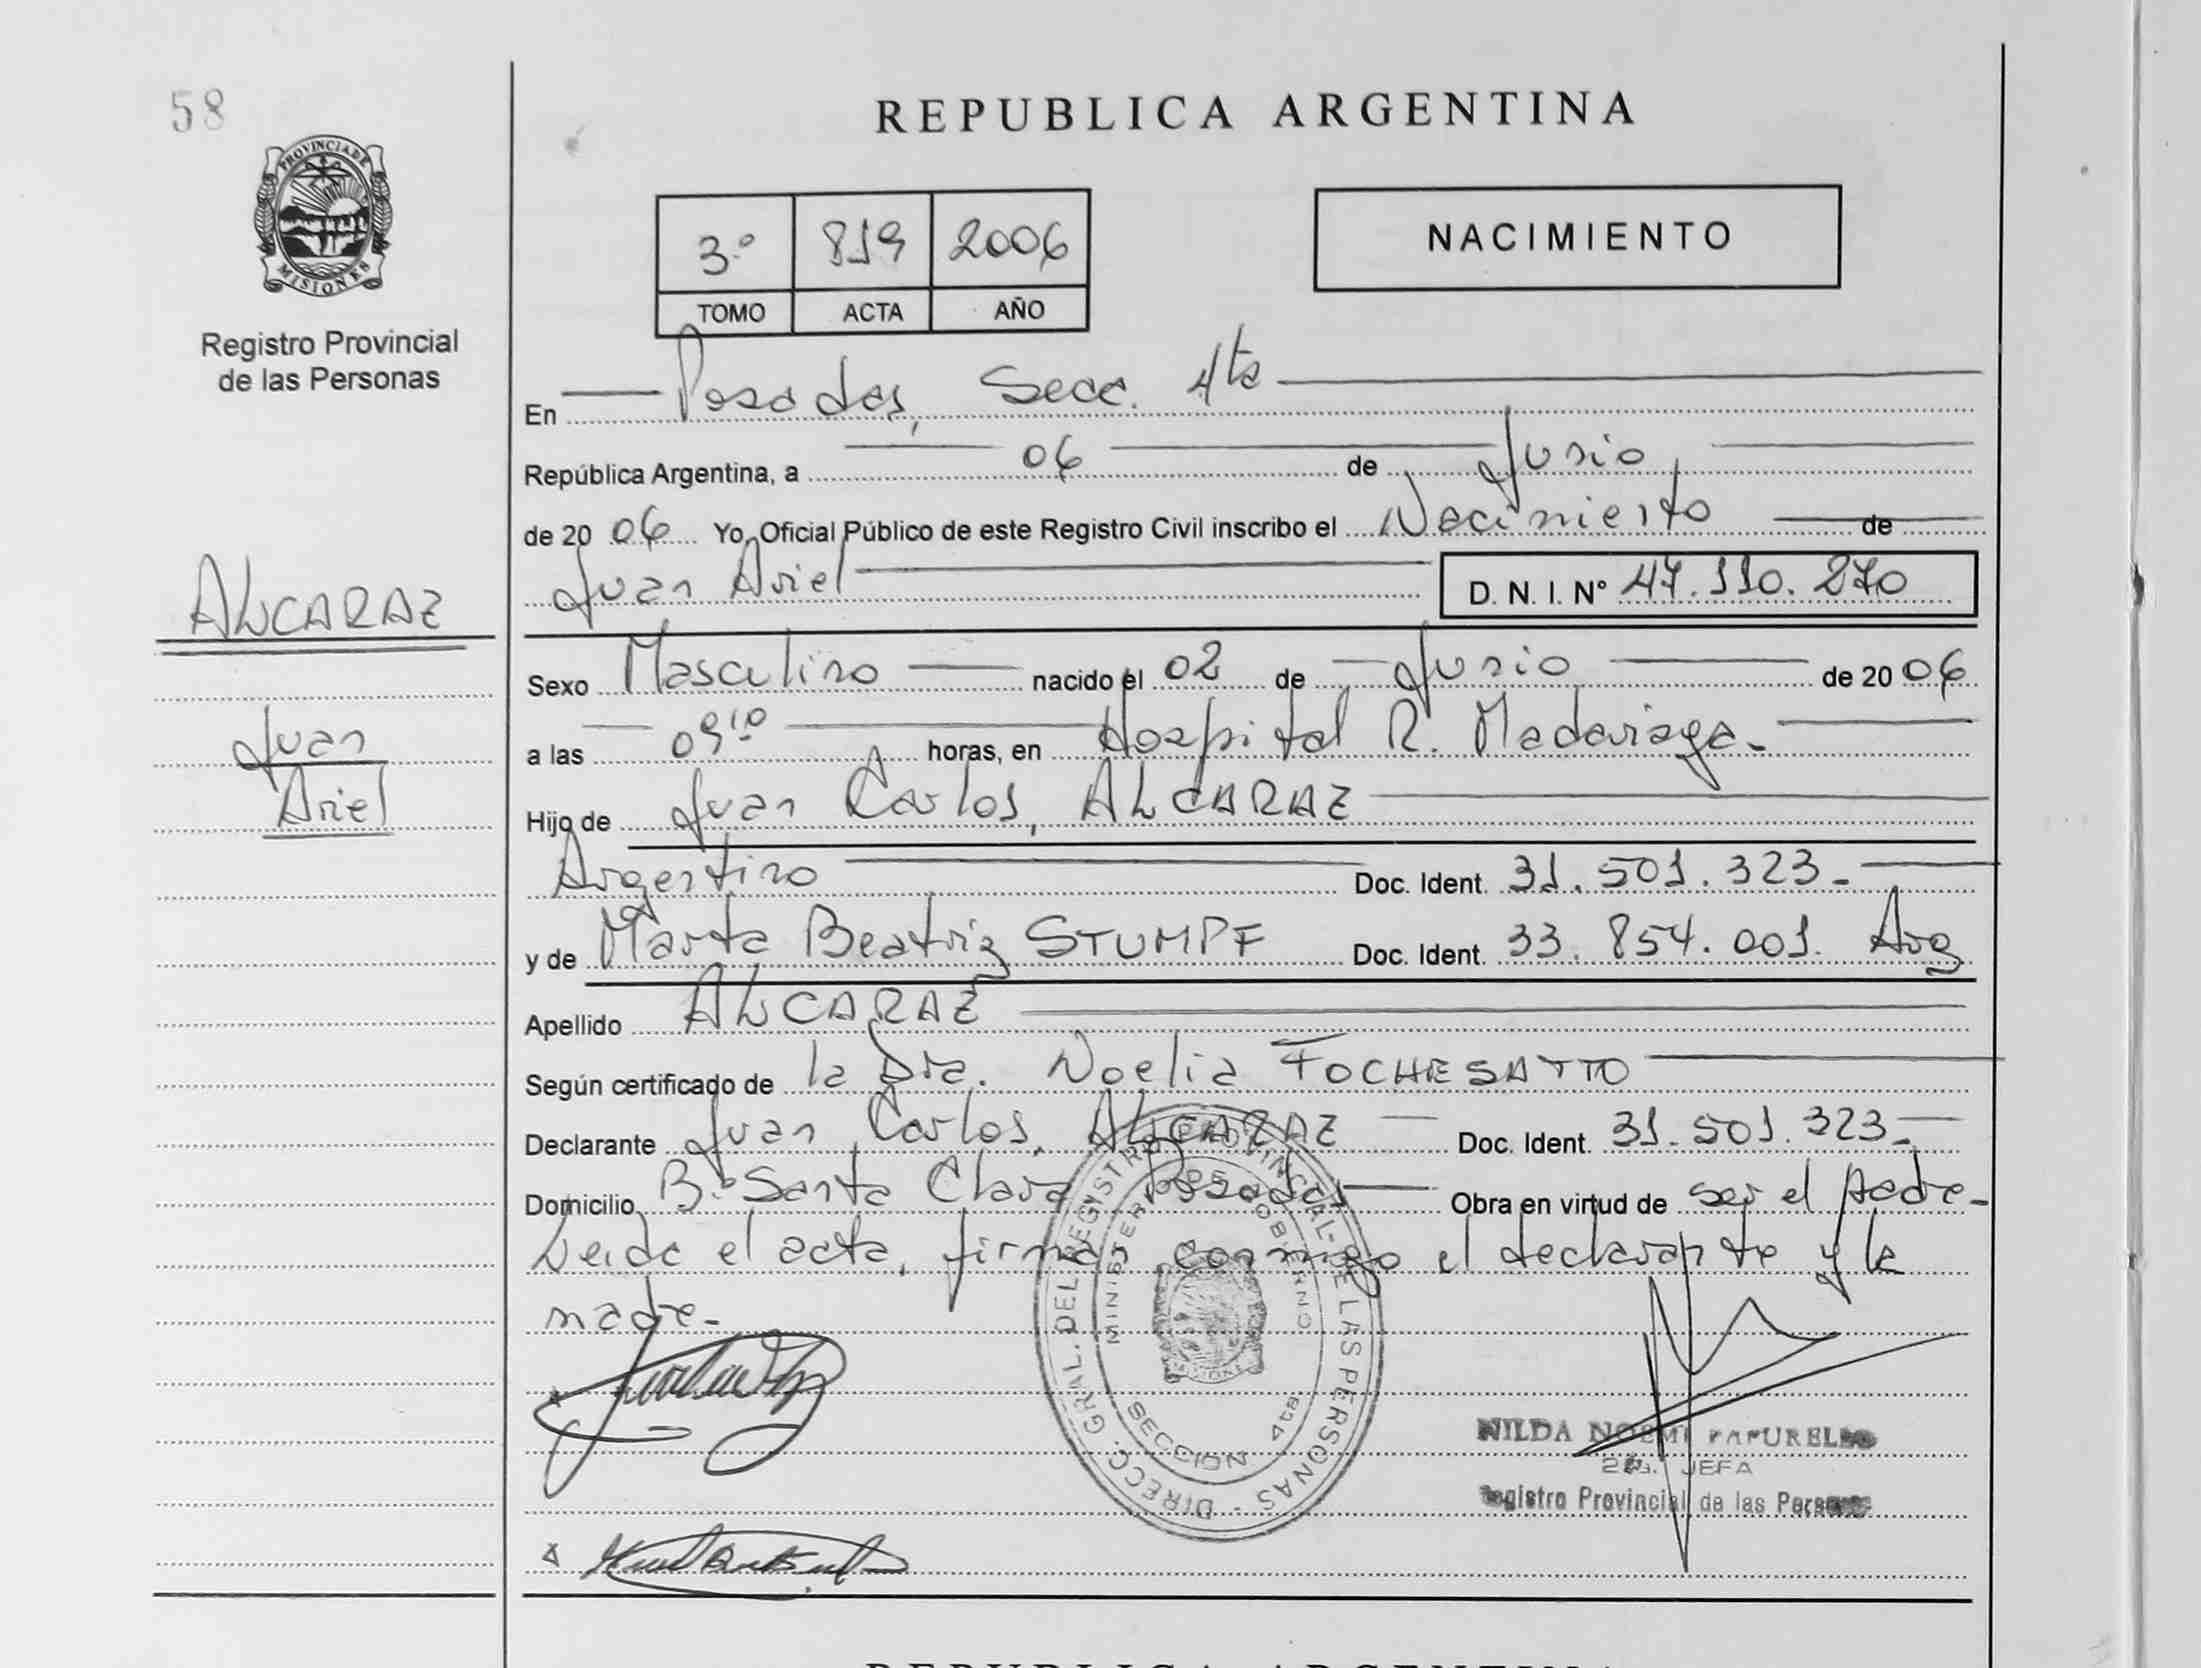 58
REPUBLICA ARGENTINA
PROVINCIA DE
MISIONES
Registro Provincial
de las Personas
3.º 819 2006
TOMO ACTA AÑO
NACIMIENTO
En Posadas, Secc. 4ta
República Argentina, a 06 de Junio
de 20 06 Yo, Oficial Público de este Registro Civil inscribo el Nacimiento de
Juan Ariel D. N. I. Nº 47.110.270
ALCARAZ
Juan
Ariel
Sexo Masculino nacido el 02 de Junio de 20 06
a las 09:10 horas, en Hospital R. Madariaga.
Hijo de Juan Carlos, ALCARAZ
Argentino Doc. Ident. 31.501.323.-
y de Marta Beatriz STUMPF Doc. Ident. 33.854.001. Arg
Apellido ALCARAZ
Según certificado de la Dra. Noelia FOCHESATTO
Declarante Juan Carlos, ALCARAZ Doc. Ident. 31.501.323.-
Domicilio Bº Santa Clara Posadas Obra en virtud de ser el padre-
Leida el acta, firman conmigo el declarante y la
madre-
DIRECC. GRAL. DEL REGISTRO PROVINCIAL DE LAS PERSONAS -
MINISTERIO DE GOBIERNO
SECCION 4ta
NILDA NOEMI
JEFA
Registro Provincial de las Personas
REPUBLICA ARGENTINA